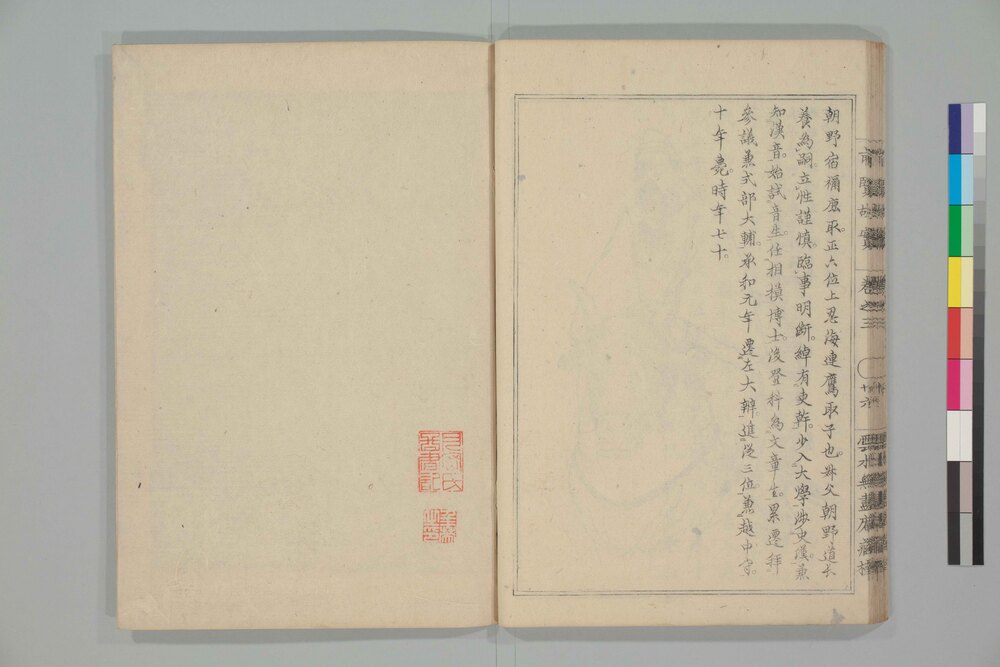 朝野宿禰鹿取。正六位上忍海連鷹取子也。叔父朝野道長
養為嗣。立性謹慎。臨事明断。綽有吏幹。少入大學。渉史漢。兼
知漢音。始試音生。任相模博士。後登科為文章生。累遷拜
參議兼式部大輔。承和元年遷左大辨。進從三位。兼越中守。
十年薨。時年七十。
前賢故實
卷之三